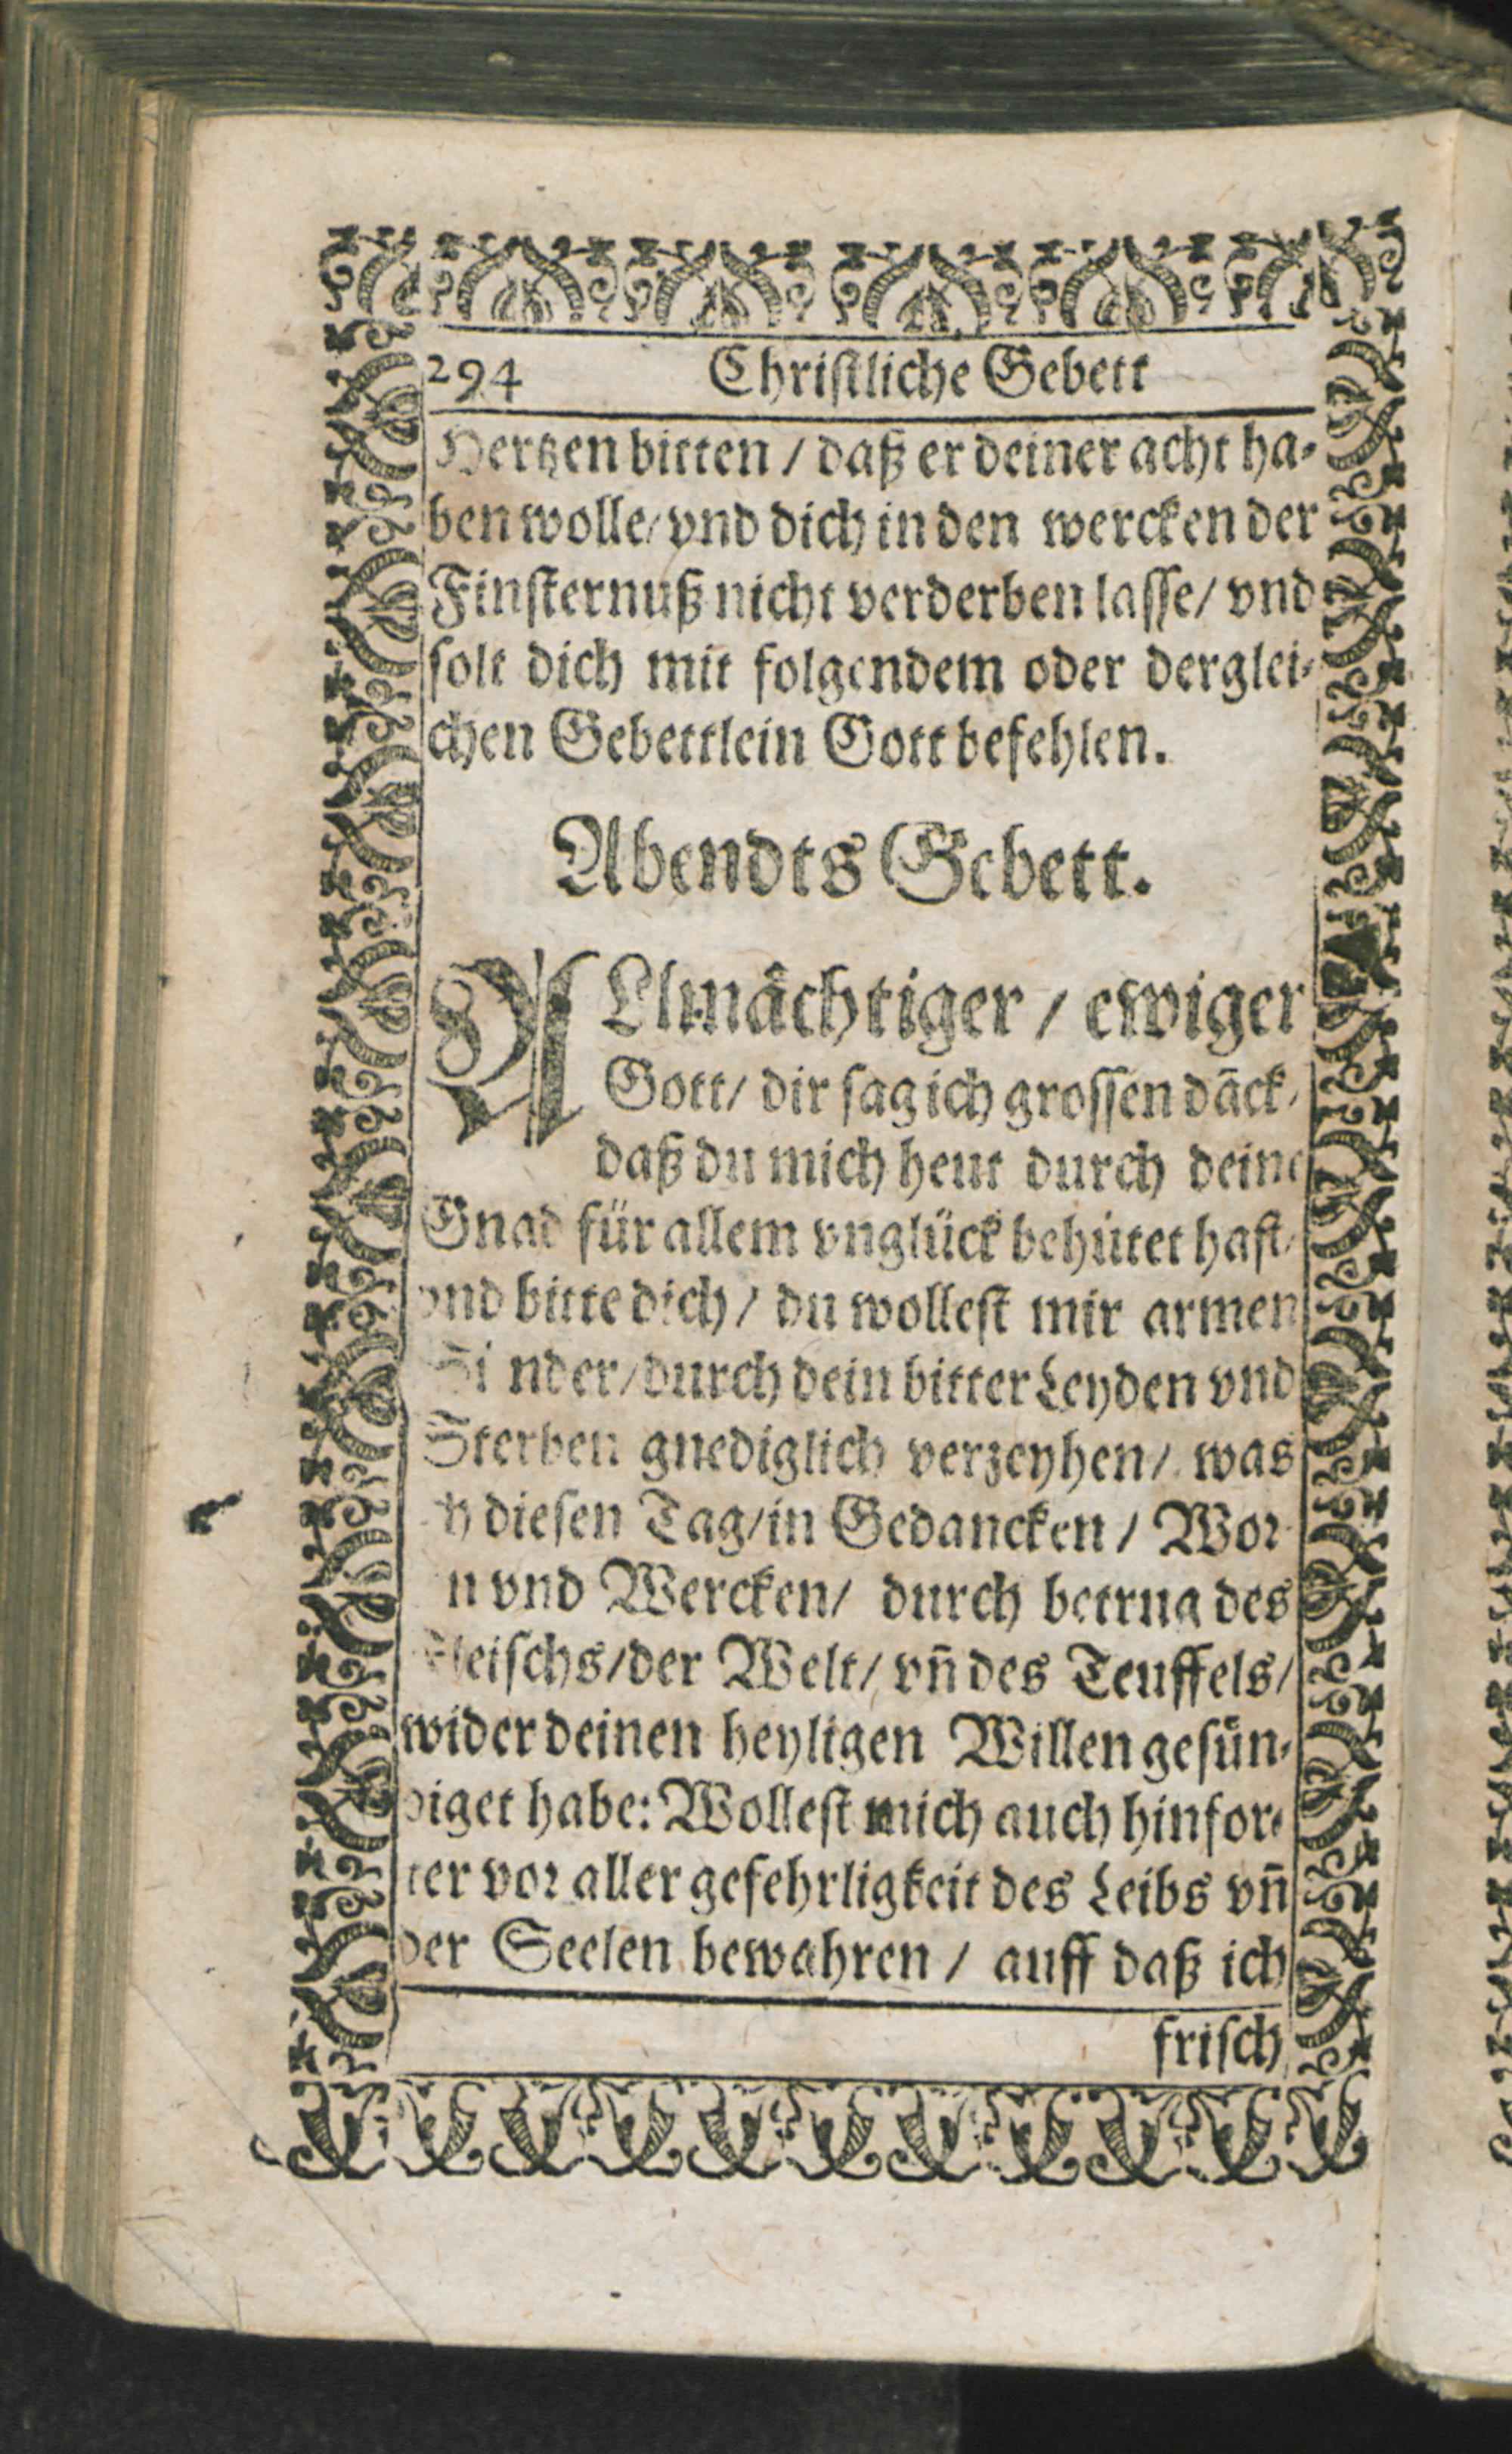 294 Christliche Gebett
Hertzen bitten / daß er deiner acht ha-
ben wolle / vnd dich in den wercken der
Finsternuß nicht verderben lasse / vnd
solt dich mit folgendem oder derglei-
chen Gebettlein Gott befehlen.
Abendts Gebett.
ALlmächtiger / ewiger
Gott / dir sag ich grossen dāck /
daß du mich heut durch deine
Gnad für allem vnglück behütet hast /
vnd bitte dich / du wollest mir armen
Sünder / durch dein bitter Leyden vnd
Sterben gnediglich verzeyhen / was
diesen Tag / in Gedancken / Wor
n vnd Wercken / durch betrug des
Fleischs / der Welt / vn̄ des Teuffels /
wider deinen heyligen Willen gesün-
diget habe: Wollest mich auch hinfor-
ter vor aller gefehrligkeit des Leibs vn̄
der Seelen bewahren / auff daß ich
frisch